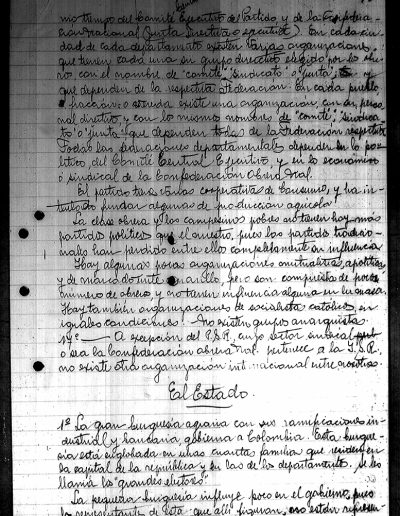 mo tiempo del Comité Ejecutivo del Partido, y de la Confedera-
ción Nacional (junta directiva o ejecutiva). En cada ciu-
dad de cada departamento existen varias organizaciones
que tienen cada una su grupo directivo elegido por los
con el nombre de "comité", "sindicato" o "junta",
que dependen de la respectiva Federación. En cada pueblo
o fracción o vereda existe una organización, con su perso-
nal directivo y con los mismos nombres de "comité", "sindica-
to" o "junta" que dependen todas de la Federación respectiva
Todas las federaciones departamentales dependen en lo po-
lítico del Comité Central Ejecutivo y en lo económico
o sindical de la Confederación Obrera Nal.
El partido tiene varias cooperativas de consumo, y ha in-
tentado fundar algunas de producción agrícola.
La clase obrera y los campesinos pobres no tienen hoy más
partidos políticos que el nuestro, pues los partidos tradicio-
nales han perdido entre ellos completamente su influencia
Hay algunas pocas organizaciones mutualistas, apolíticas
y de marcado tinte amarillo, pero son compuestas de pocos
número de obreros y no tienen influencia alguna en la masa.
Hay también organizaciones de socialistas católicos, en
iguales condiciones. No existen grupos anarquistas.
14º — A excepción del P.S.R. cuyo sector sindical
o sea la Confederación obrera nal. pertenece a la I.S.R.
no existe otra organización internacional entre nosotros.
El Estado.
1º La gran burguesía agraria con sus ramificaciones in-
dustrial y bancaria, gobierna a Colombia. Esta burgue-
sía está englobada en unas cuantas familias que residen en
la capital de la república y en las de los departamentos. Se les
llama los "grandes electores".
La pequeña burguesía influye poco en el gobierno, pues
los representantes de ésta que allí figuran, no están represen-